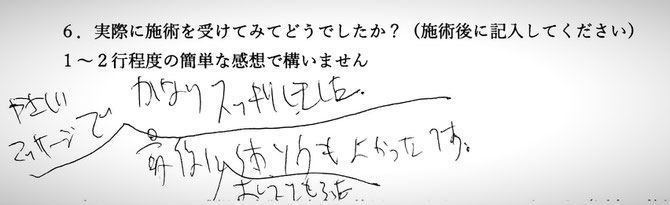 6．実際に施術を受けてみてどうでしたか？（施術後に記入してください）
1～2行程度の簡単な感想で構いません
かなりスッキリしました。
やさしい
マッサージで
もよかったです。
おしてもらった